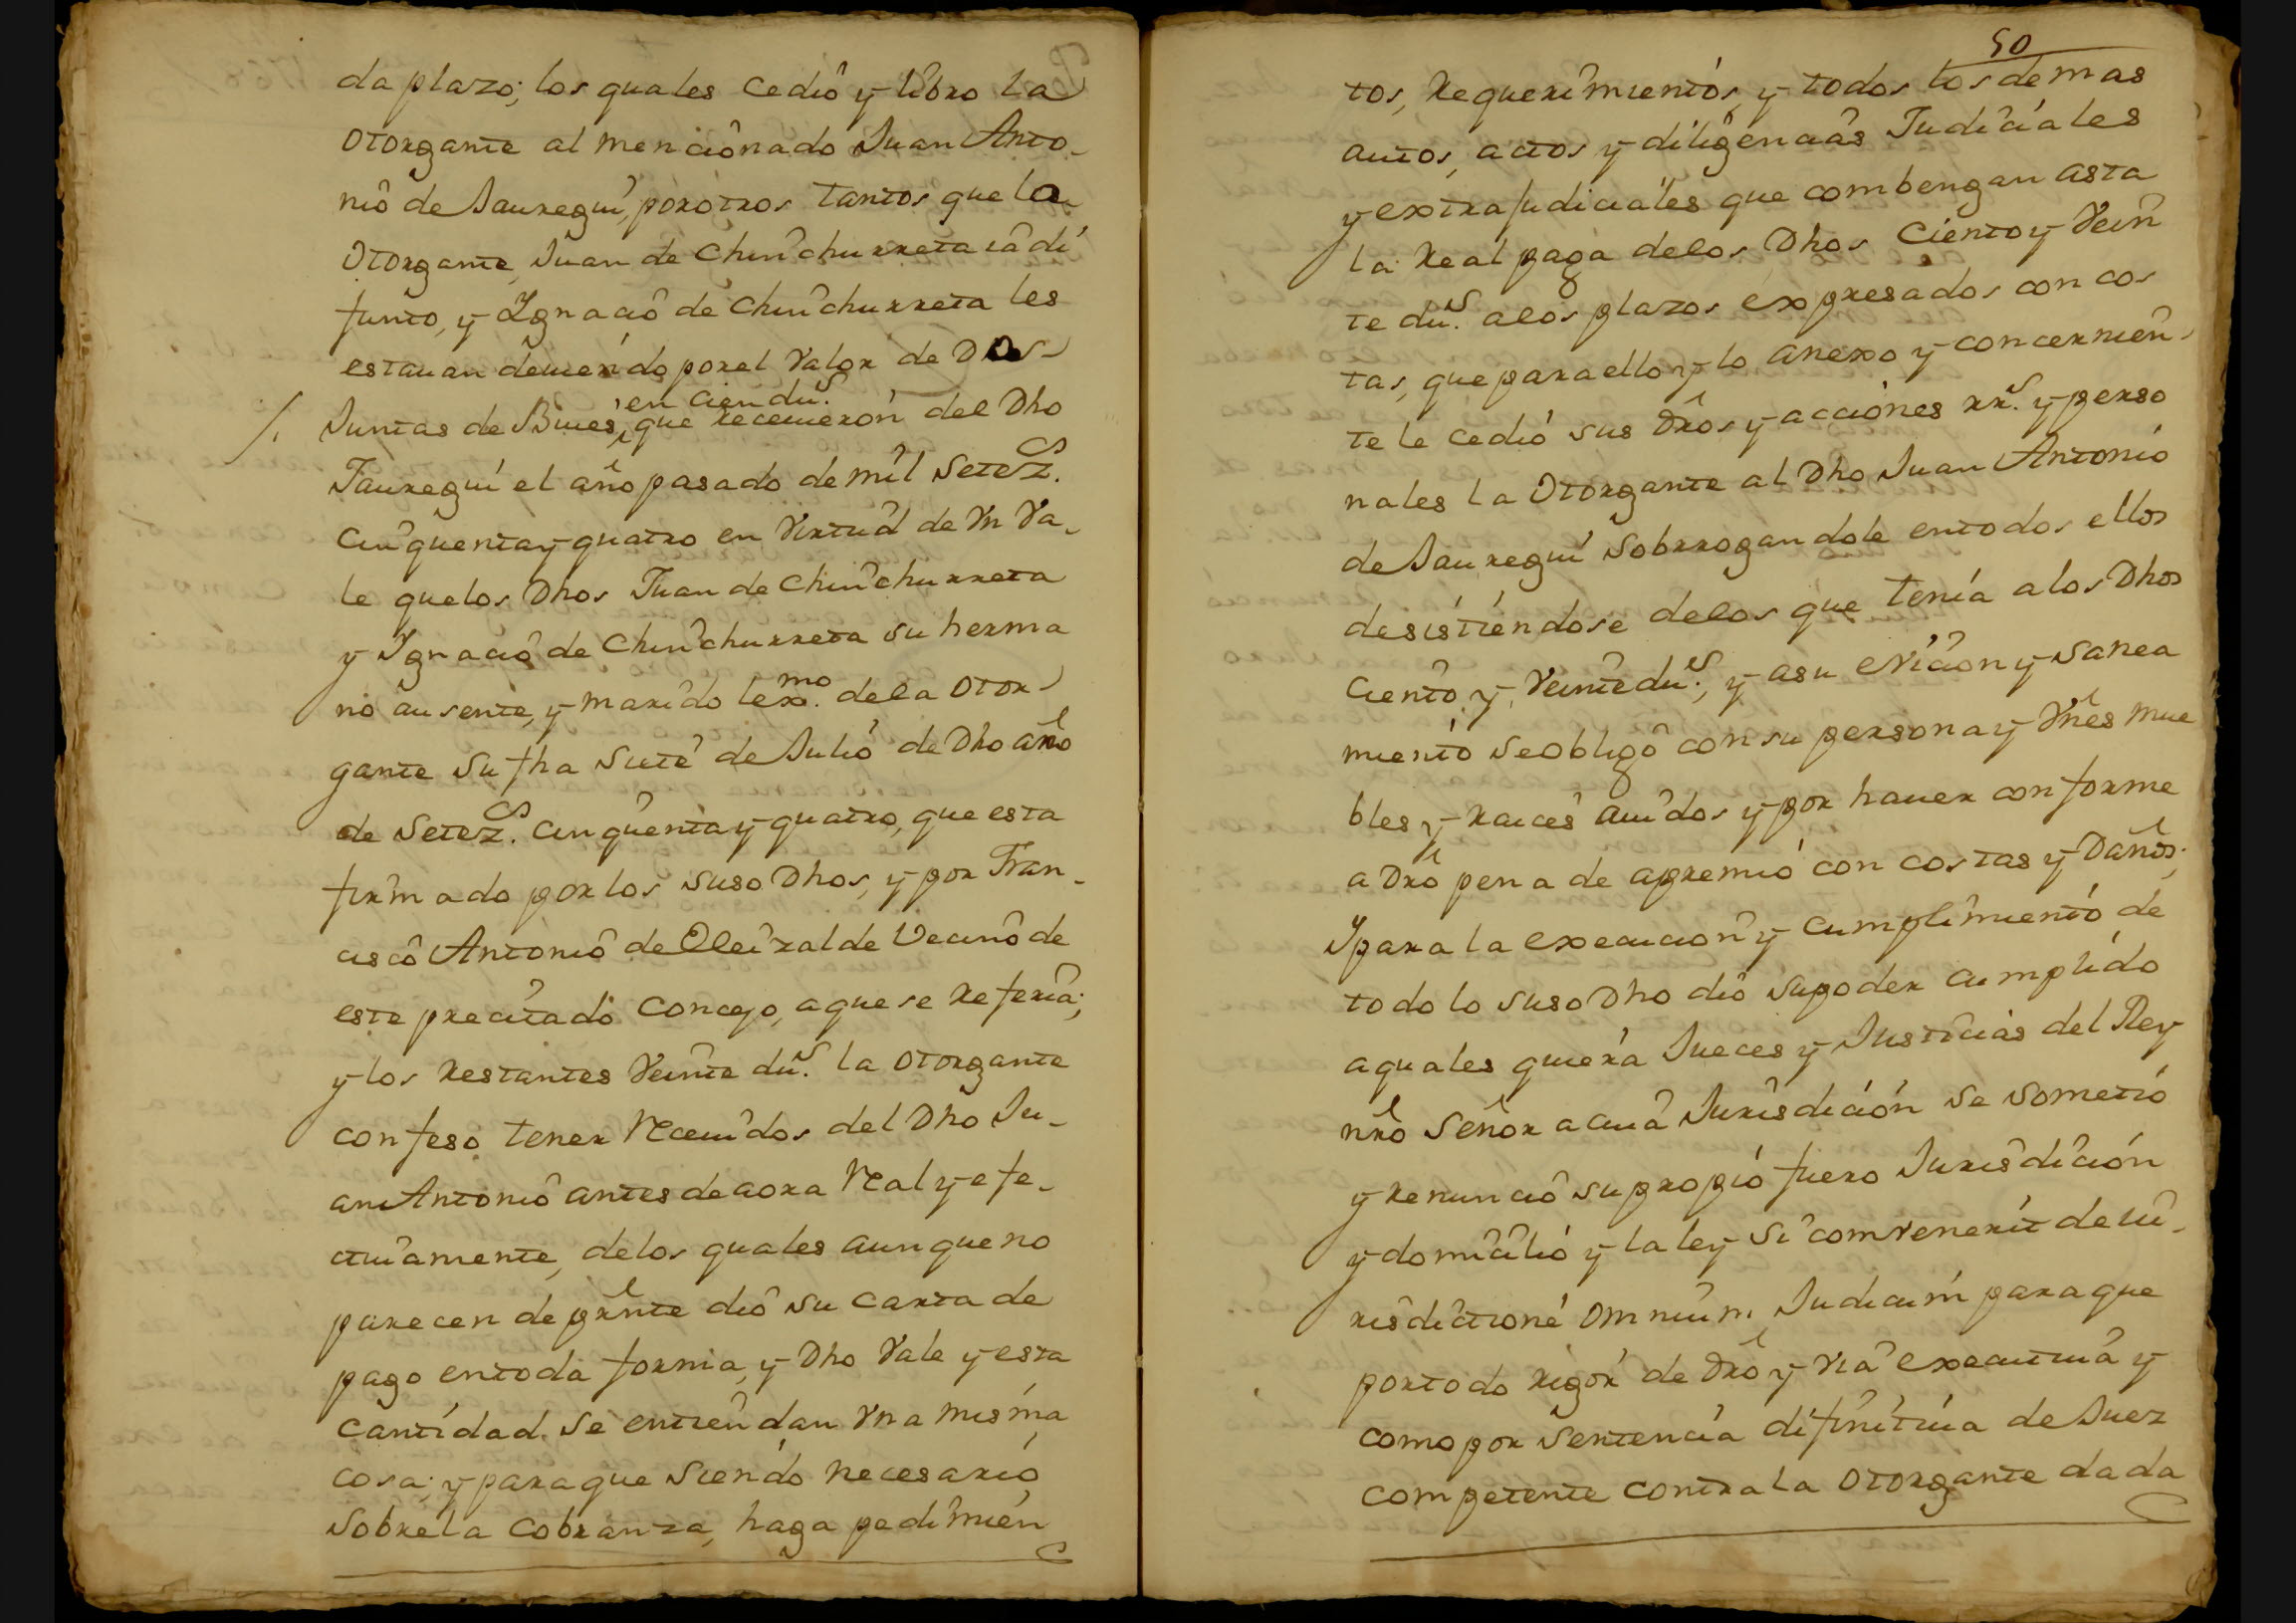 da plazo; los quales cedió y libro la
otorgante al mencionado Juan Anto-
nio de Jauregui, por otros tantos que la
otorgante, Juan de Chinchurreta ia di
funto, y Ygnacio de Chinchurreta les
estauan deuiendo por el valor de Dos
en cien dus.
/. Juntas de Bues, que receuieron del Dho
Jauregui el año pasado de mil setez.
cinquenta y quatro en virtud de vn va-
le que los Dhos Juan de Chinchurreta
y Ygnacio de Chinchurreta su herma
no ausente, y marido lexmo. de la otor-
gante su fha siete de Julio de Dho año
de setez. cinquenta y quatro, que esta
firmado por los suso Dhos, y por Fran-
cisco Antonio de Oleizalde Vecino de
este precitado Concejo, a que se referia;
y los restantes veinte dus. la otorgante
confeso tener receuidos del Dho Ju-
an Antonio antes de aora real y efe-
ctiuamente, de los quales aunque no
parecen de prnte dió su carta de
pago en toda forma, y Dho vale y esta
cantidad se entiendan vna misma
cosa; y para que siendo necesario,
sobre la cobranza, haga pedimien
50
tos, requerimientos, y todos los demas
autos, actos y diligencias Judiciales
y extrajudiciales que combengan asta
la real paga de los Dhos ciento y vein
te dus. a los plazos expresados con cos
tas, que para ello y lo anexo y concernien
te le cedió sus dros y acciones rrs. y perso
nales la otorgante al Dho Juan Antonio
de Jauregui sobrrogandole en todos ellos
desistiendose de los que tenia a los Dhos
ciento y veinte dus., y a su evicion y sanea
miento se obligó con su persona y vnes mue
bles y raices auidos y por hauer conforme
a Dro pena de apremio con costas y Daños;
Y para la execucion y cumplimiento de
todo lo suso Dho dió su poder cumplido
a quales quiera Jueces y Justicias del Rey
nro Señor a cuia Jurisdición se sometió
y renunció su propio fuero Jurisdición
y domicilio y la ley si comvenerit de iu-
risdictione omnium Judicum para que
por todo rigor de Dro y via executiua y
como por sentencia difinitiua de Juez
competente contra la otorgante dada